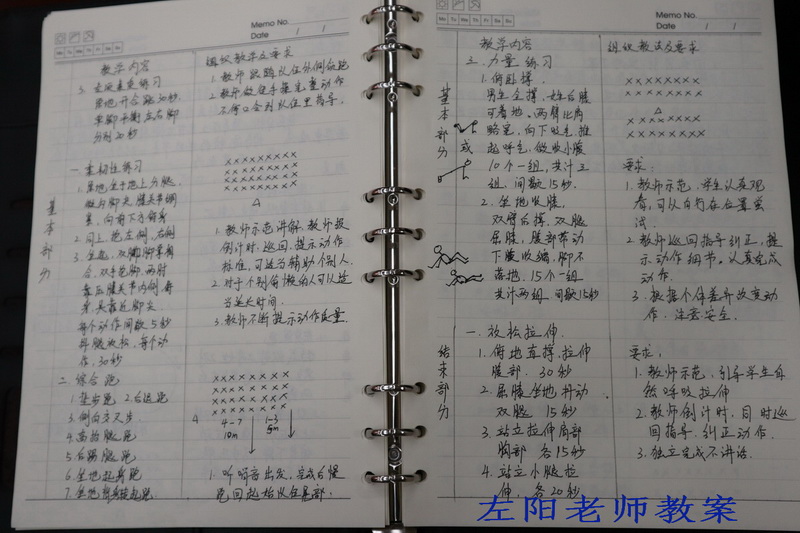 Memo No.
Date / /
Mo Tu We Th Fr Sa Su
教学内容
原地开合跳30秒.
单脚平衡左右脚
分别20秒
基本部分
一.柔韧性练习
1.原地坐于地上分腿,
2.同上,抱左侧,右侧
3.坐起,双脚脚掌相
合,双手抱脚,两肘
靠近脚尖
每个动作间歇5秒
30秒
二.综合跑
1.垫步跑 2.后退跑
3.侧向交叉步.
4.高抬腿跑
5.后踢腿跑
6.坐地起身跑
组织教学及要求
1.教师示范讲解,教师报
倒计时.巡回.提示动作
标准,可适当辅助个别人.
2.对于个别
当延长时间.
3.教师不断提示动作质量.
4-7
10m
1-3
5m
1.听哨音出发,完成后慢
跑回起始队伍尾部.
Memo No.
Date / /
Mo Tu We Th Fr Sa Su
教学内容
基本部分
三.力量练习
1.俯卧撑.
可着地.两臂比肩
略宽,向下吸气,推
起呼气,微收小腹
或
10个一组,共计三
组.间歇15秒.
2.坐地收腿.
双臂后撑,双腿
屈膝,腹部带动
下腹收缩,脚不
落地.15个一组
共计两组.间歇15秒
结束部分
一.放松拉伸.
1.俯地直撑.拉伸
腹部.30秒
2.屈膝坐地抖动
双腿 15秒
3.站立拉伸肩部
胸部 各15秒
4.站立小腿拉
伸.各20秒
组织教法及要求
要求:
1.教师示范.学生认真观
看,可以自行在位置尝
试.
2.教师巡回指导纠正,提
示动作细节.认真完成
动作.
3.根据个体差异改变动
作.注意安全.
要求:
1.教师示范,引导学生自
然呼吸拉伸
2.教师倒计时,同时巡
回指导.纠正动作.
3.独立完成不讲话.
左阳老师教案